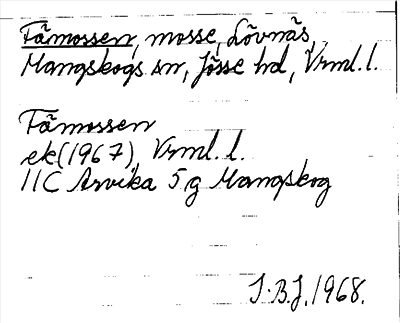 Fämossen, mosse, Lövnäs,
Mangskogs sn, Jösse hd, Vrml. l.
Fämossen
ek(1967), Vrml. l.
11C Arvika 5g Mangskog
S.B.J. 1968.